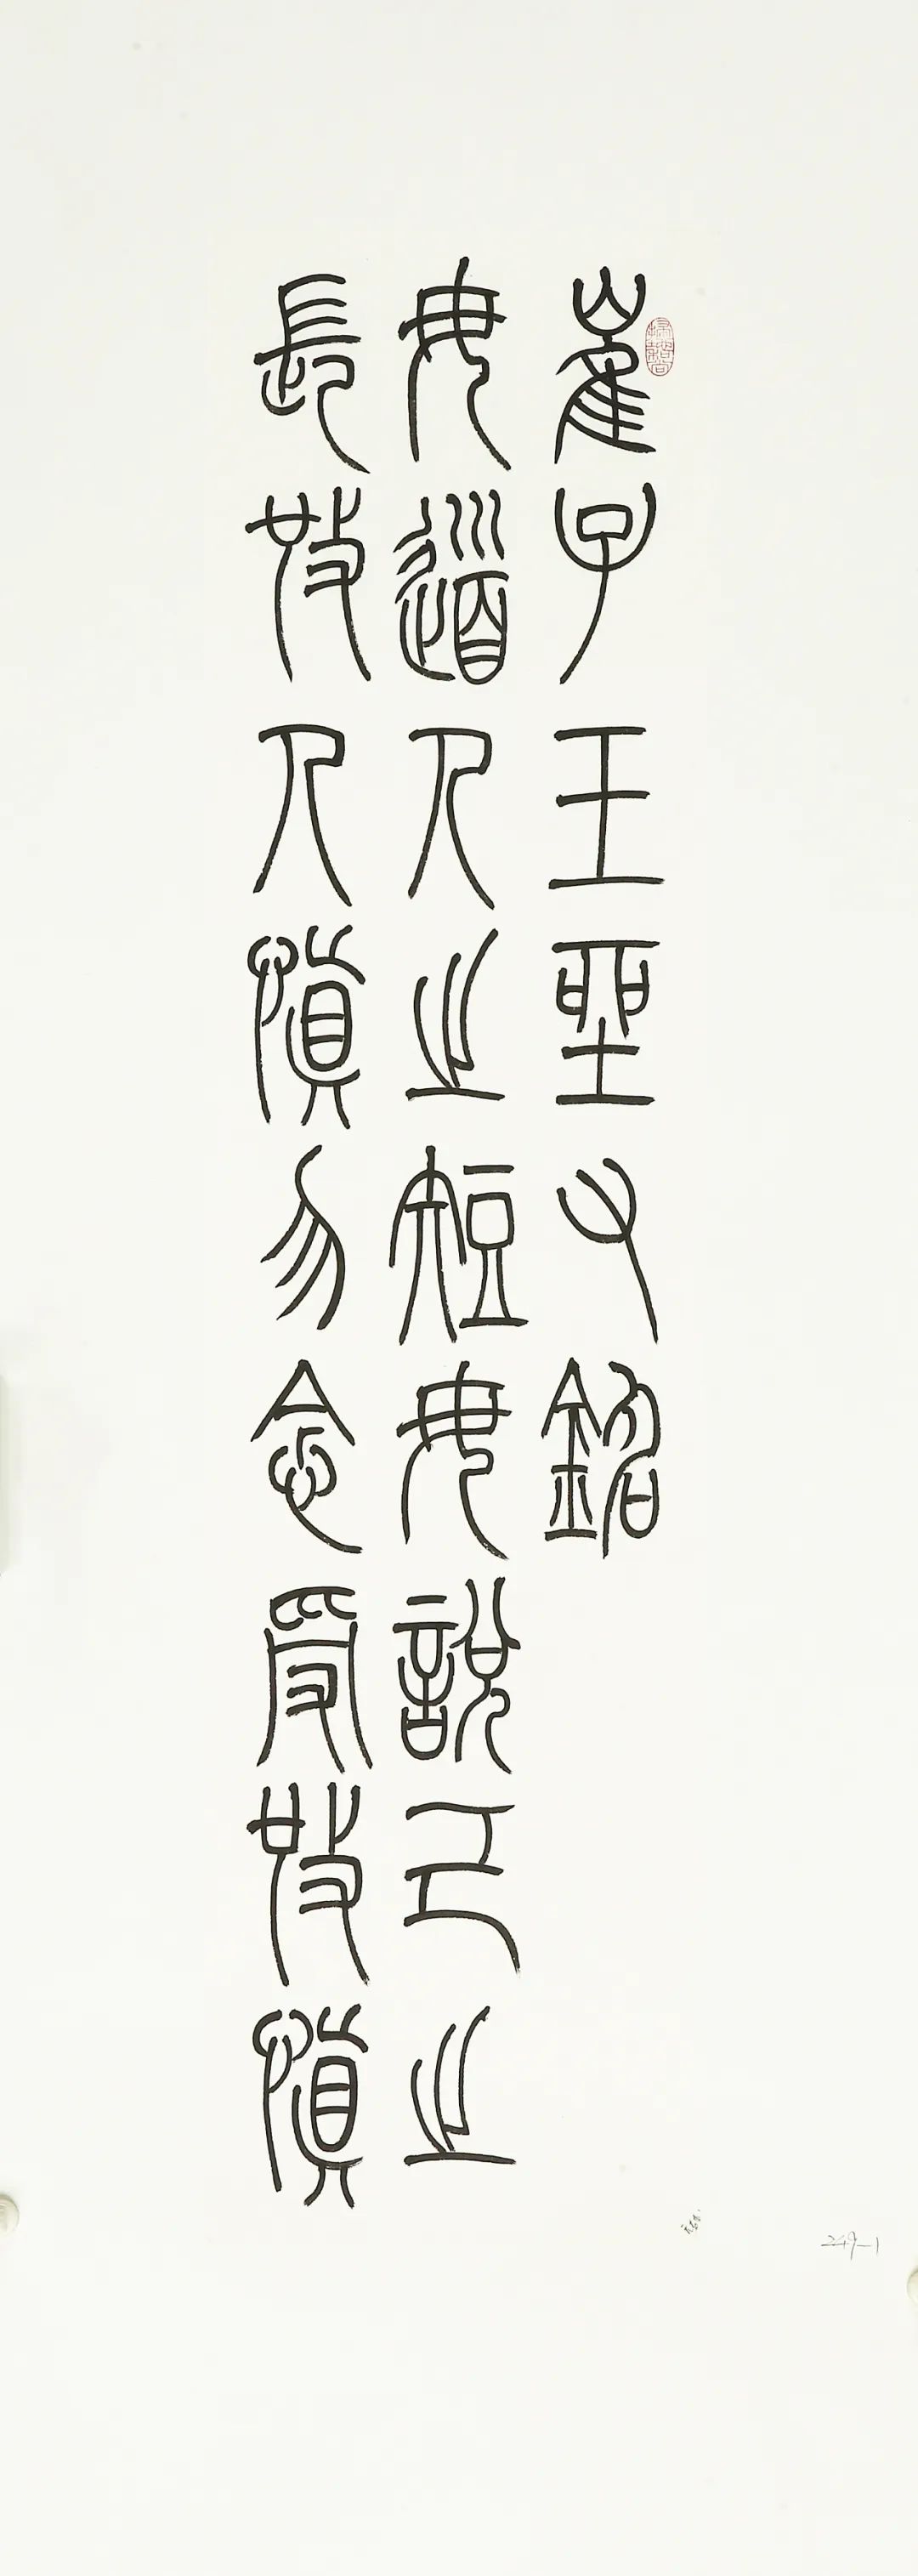 崔子玉坐右銘
毋道人之短毋說己之
長施人慎勿念受施慎
249-1